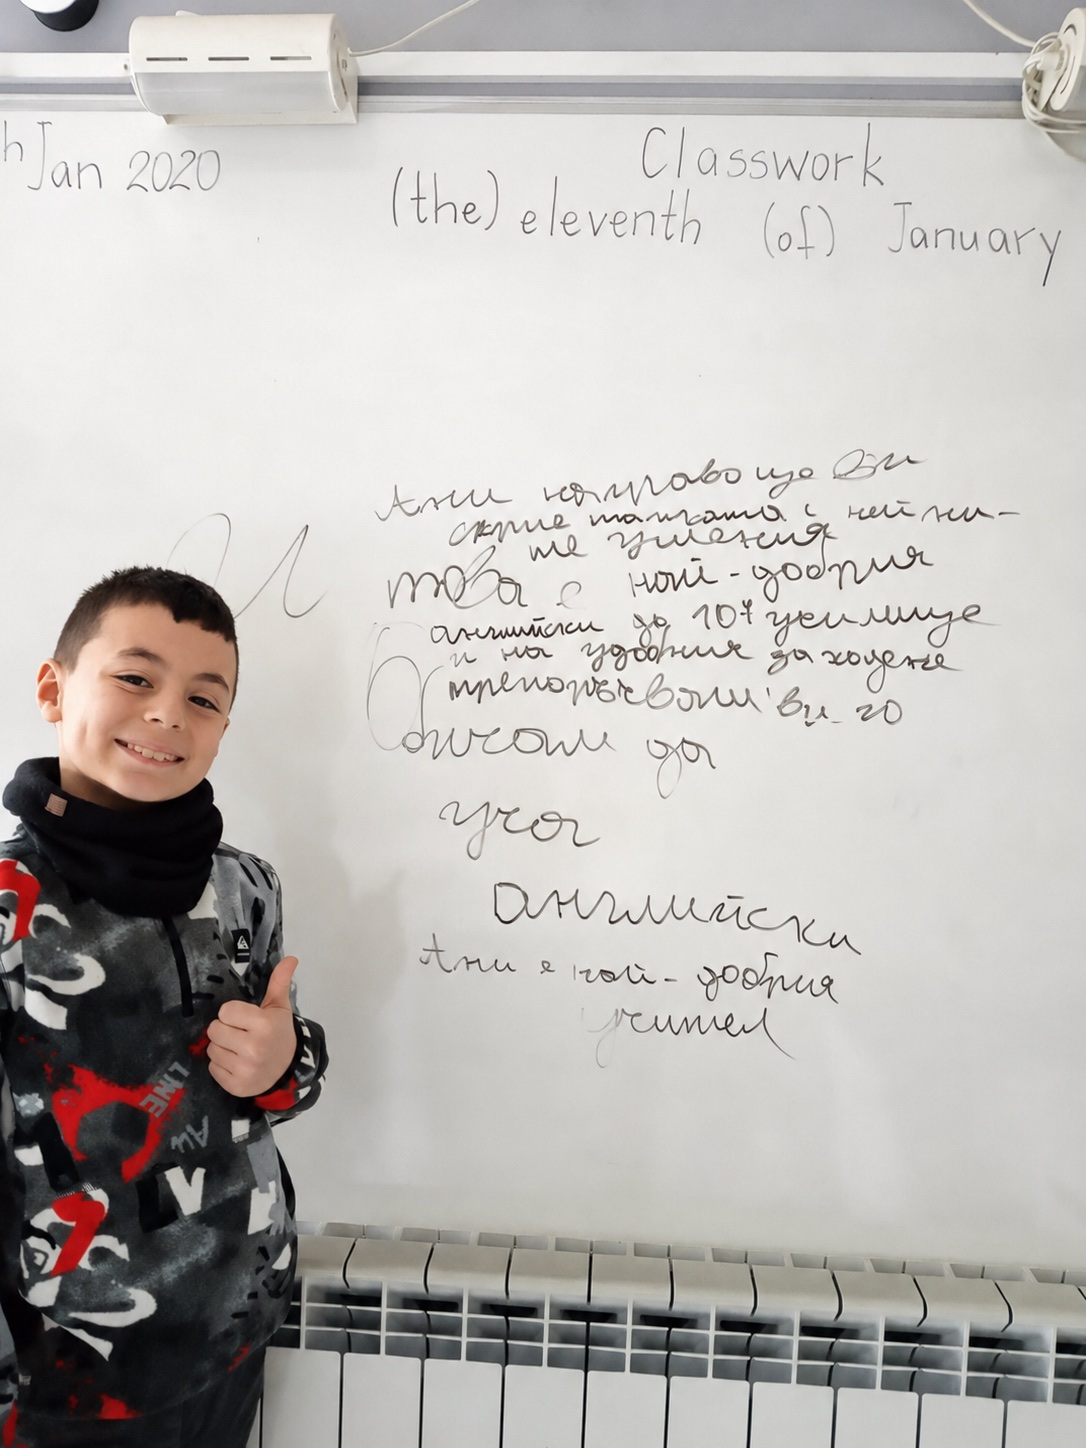 h Jan 2020
Classwork
(the) eleventh (of) January
Ани направо ще Ви
скрие шапката с нейни-
те умения
това е най-добрия
английски до 107 училище
и на удобния за ходене
препоръчвам ви го
Обичам да
уча
английски
Ани е най-добрия
учител
LINE